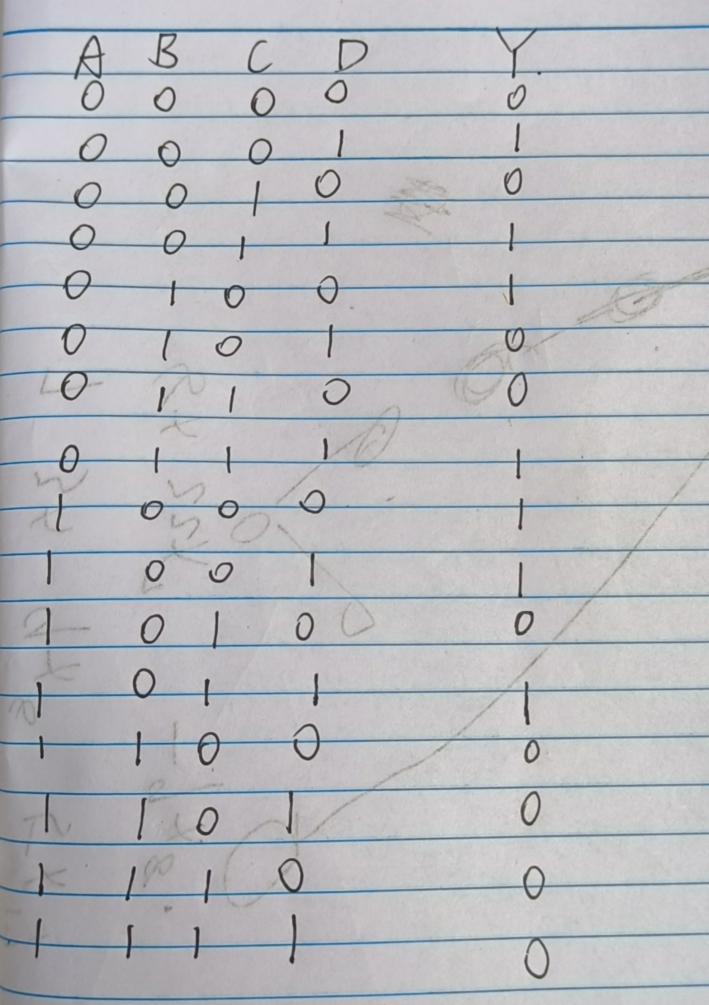 A B C D Y
0 0 0 0 0
0 0 0 1 1
0 0 1 0 0
0 0 1 1 1
0 1 0 0 1
0 1 0 1 0
0 1 1 0 0
0 1 1 1 1
1 0 0 0 1
1 0 0 1 1
1 0 1 0 0
1 0 1 1 1
1 1 0 0 0
1 1 0 1 0
1 1 1 0 0
1 1 1 1 0